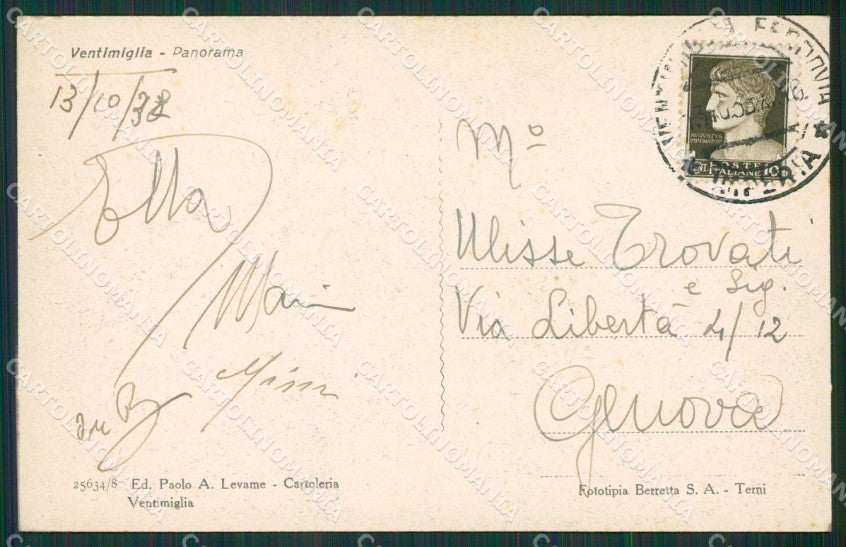 Ventimiglia - Panorama
13/10/38
Etta
Mimi
VENTIMIGLIA FERROVIA
IMPERIA
POSTE
ITALIANE 10
Mº
Ulisse Trovati
e Sig.
Via Libertà 4/12
Genova
25634/8 Ed. Paolo A. Levame - Cartoleria
Ventimiglia
Fototipia Berretta S. A. - Terni
CARTOLINOMANIA